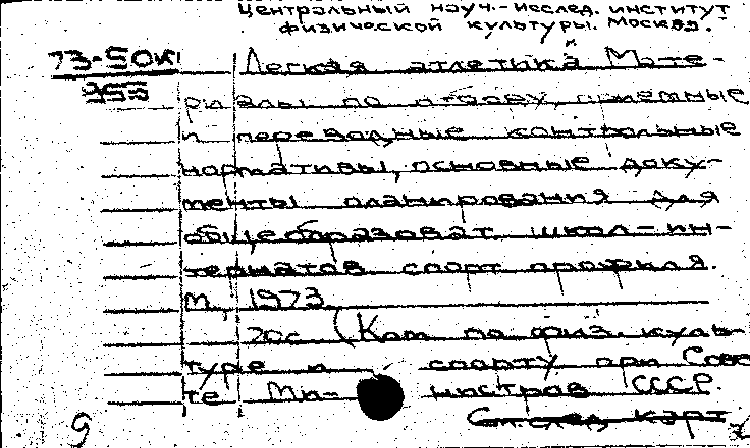 Центральный науч.-исслед. институт
физической культуры. Москва.
73-50К
955
Легкая атлетика. Мате-
риалы по отбору, приемные
и переводные контрольные
нормативы, основные доку-
менты планирования для
общеобразоват. школ-ин-
тернатов спорт. профиля.
М., 1973.
20с. (Ком. по физ. куль-
туре и спорту при Сове
те Ми- нистров СССР.
См. след. карт
9